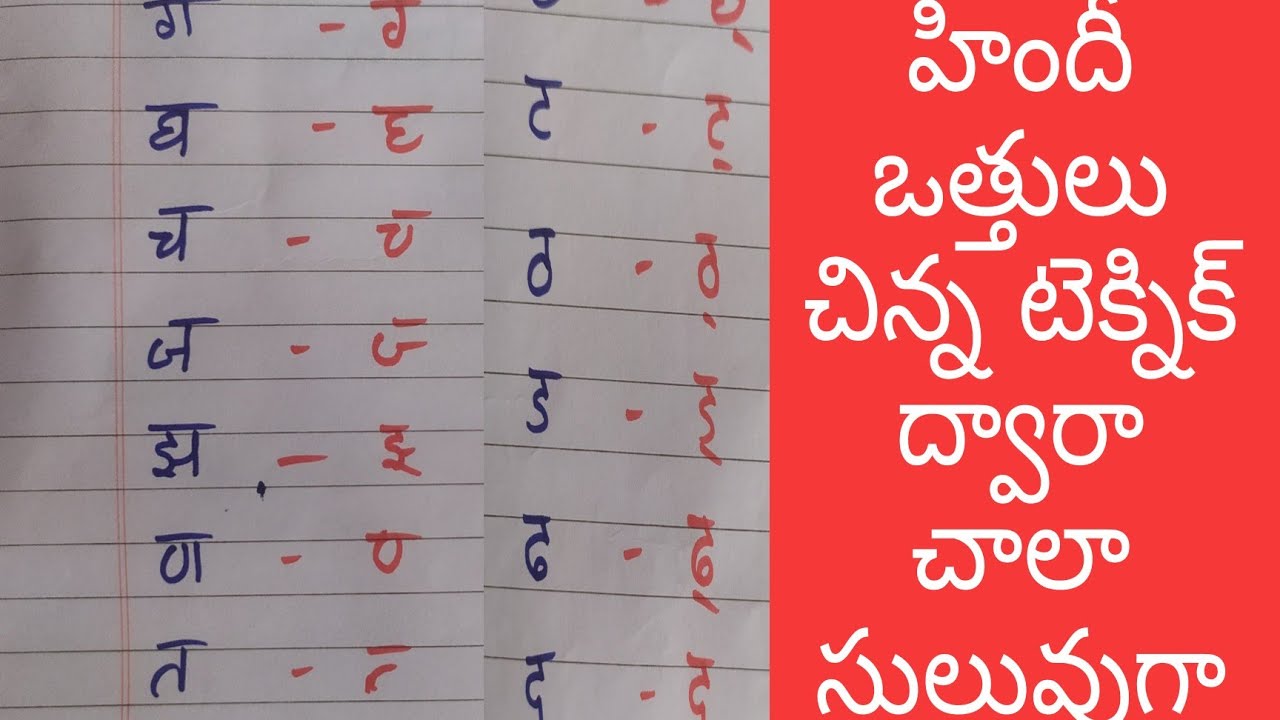 ग - ग्‍
घ - घ्‍
च - च्‍
ज - ज्‍
झ - झ्‍
ण - ण्‍
त - त्‍
ट - ट्
ठ - ठ्
ड - ड्
ढ - ढ्
द - द्
హిందీ
ఒత్తులు
చిన్న టెక్నిక్
ద్వారా
చాలా
సులువుగా